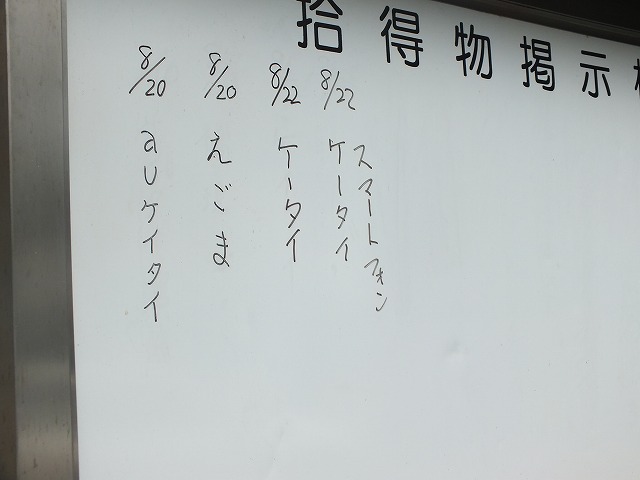 拾得物掲示
8/22 スマートフォン
ケータイ
8/22 ケータイ
8/20 えごま
8/20 auケイタイ